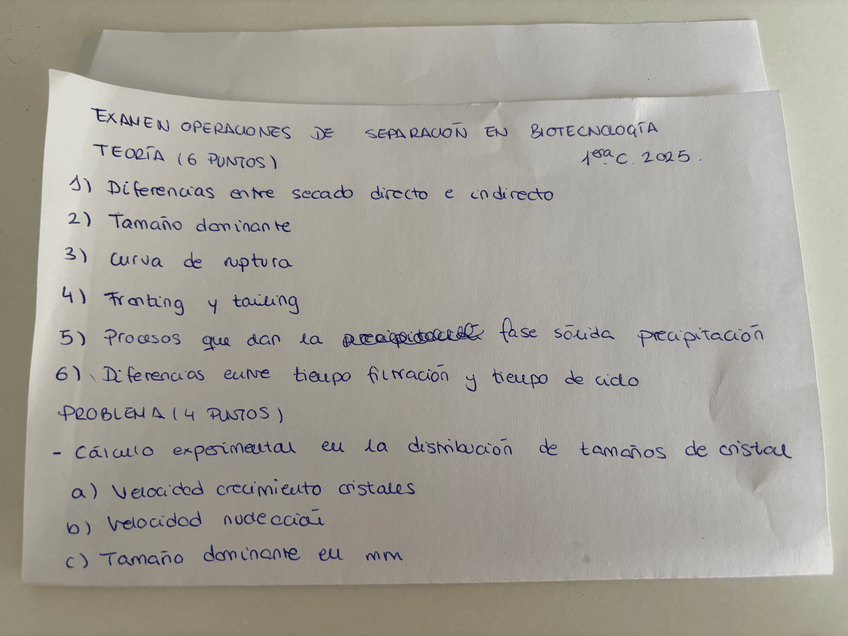 EXAMEN OPERACIONES DE SEPARACIÓN EN BIOTECNOLOGÍA
TEORÍA (6 PUNTOS) 1era C. 2025.
1) Diferencias entre secado directo e indirecto
2) Tamaño dominante
3) Curva de ruptura
4) Fronting y tailing
5) Procesos que dan la fase sólida precipitación
6) Diferencias entre tiempo filtración y tiempo de ciclo
PROBLEMA (4 PUNTOS)
- Cálculo experimental en la distribución de tamaños de cristal
a) Velocidad crecimiento cristales
b) Velocidad nucleación
c) Tamaño dominante en mm